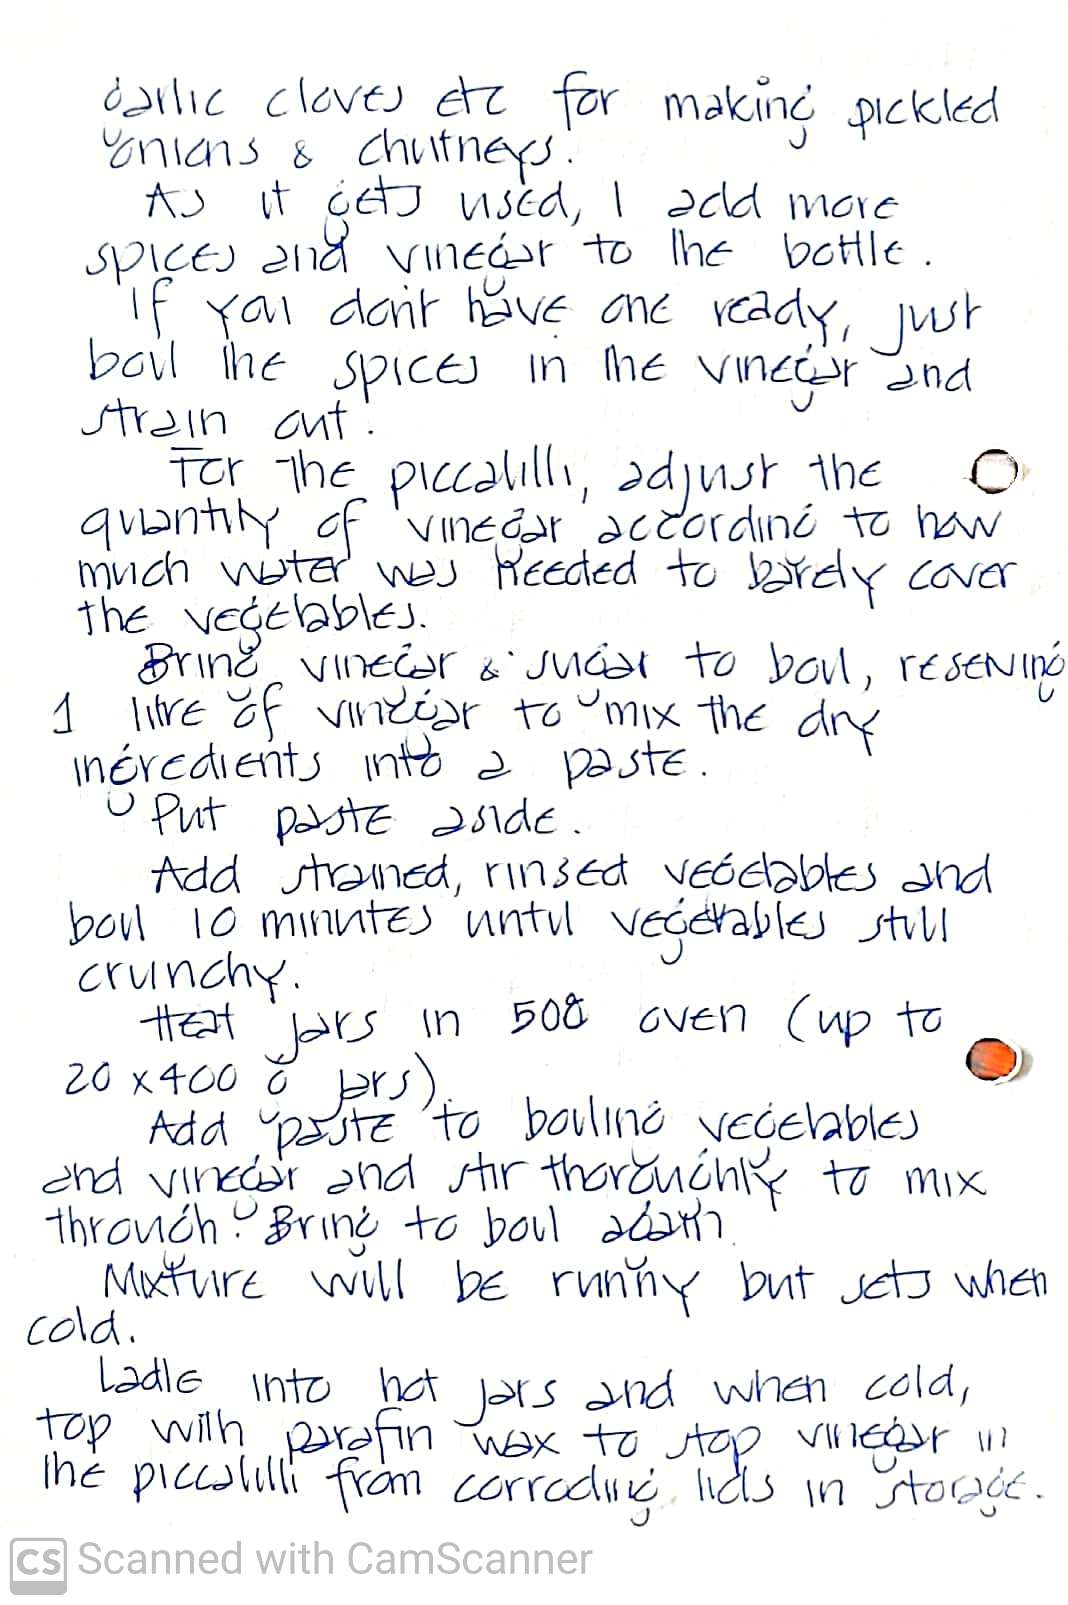 garlic cloves etc for making pickled
onions & chutneys.
As it gets used, I add more
spices and vinegar to the bottle.
If you don't have one ready, just
boil the spices in the vinegar and
strain out.
For the piccalilli, adjust the
quantity of vinegar according to how
much water was needed to barely cover
the vegetables.
Bring vinegar & sugar to boil, reserving
1 litre of vinegar to mix the dry
ingredients into a paste.
Put paste aside.
Add strained, rinsed vegetables and
boil 10 minutes until vegetables still
crunchy.
Heat jars in oven (up to
20 x 400 g jars)
Add paste to boiling vegetables
and vinegar and stir thoroughly to mix
through. Bring to boil again
Mixture will be runny but sets when
cold.
Ladle into hot jars and when cold,
top with parafin wax to stop vinegar in
the piccalilli from corroding lids in storage.
CS Scanned with CamScanner